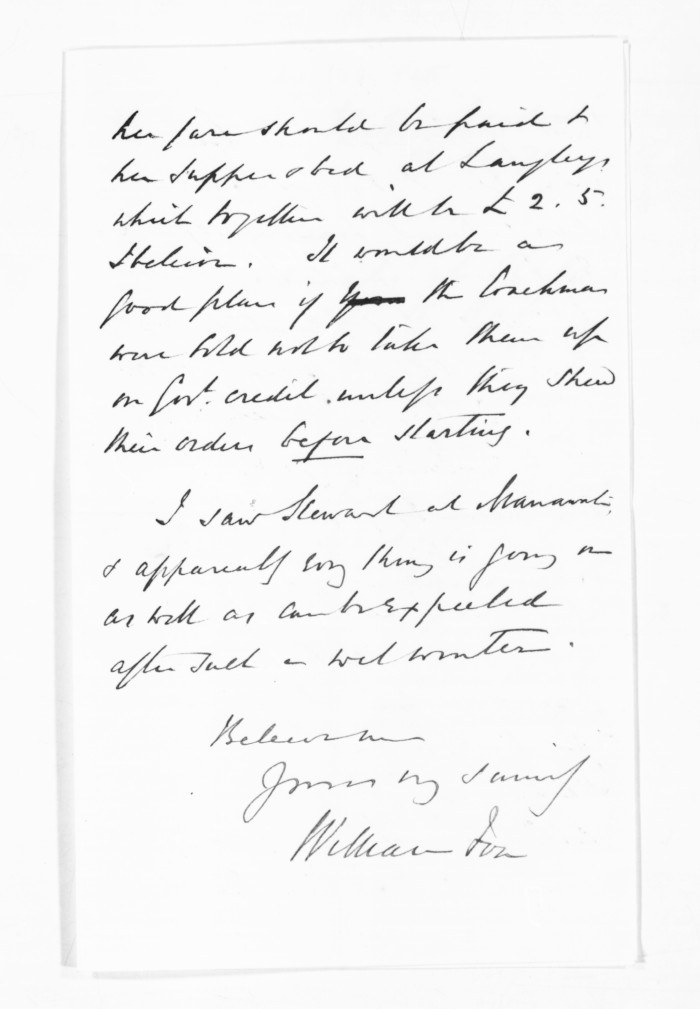 her fare should be paid &
her supper & bed at Langleys
which together will be £2.5.
I believe. It would be a
good plan if the Coachman
were told not to take them up
on Govt. credit unless they shew
their orders before starting.
I saw Stewart at Manawatu,
& apparently every thing is going on
as well as can be expected
after such a wet winter.
Believe me
Yours very sincerely
William Fox